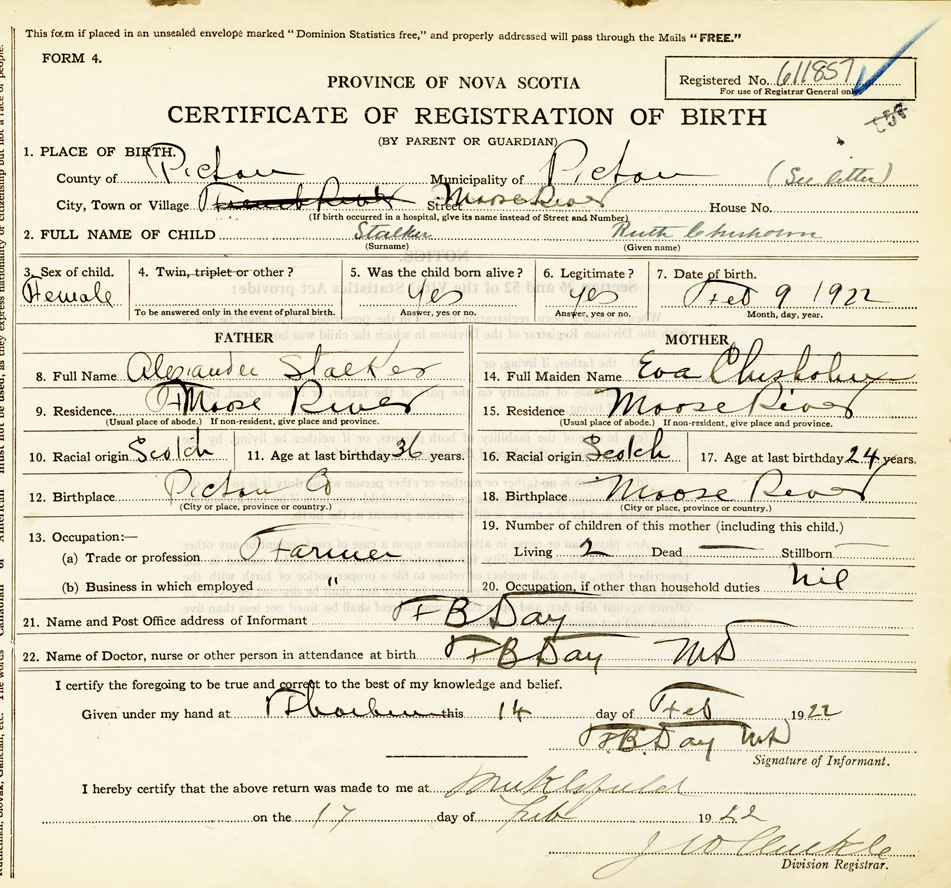 This form if placed in an unsealed envelope marked "Dominion Statistics free," and properly addressed will pass through the Mails "FREE."
FORM 4.
Registered No. 611857
For use of Registrar General only
PROVINCE OF NOVA SCOTIA
CERTIFICATE OF REGISTRATION OF BIRTH
(BY PARENT OR GUARDIAN)
1. PLACE OF BIRTH.
County of Pictou Municipality of Pictou (See letter)
City, Town or Village French River Street Moose River House No.
(If birth occurred in a hospital, give its name instead of Street and Number)
2. FULL NAME OF CHILD Stalker Ruth Chisholm
(Surname) (Given name)
3. Sex of child. 4. Twin, triplet or other ? 5. Was the child born alive? 6. Legitimate? 7. Date of birth.
Female yes yes Feb 9 1922
To be answered only in the event of plural birth. Answer, yes or no. Answer, yes or no. Month, day, year.
FATHER MOTHER
8. Full Name Alexander Stalker 14. Full Maiden Name Eva Chisholm
9. Residence Moose River 15. Residence Moose River
(Usual place of abode.) If non-resident, give place and province. (Usual place of abode.) If non-resident, give place and province.
10. Racial origin Scotch 11. Age at last birthday 36 years. 16. Racial origin Scotch 17. Age at last birthday 24 years.
12. Birthplace Pictou Co 18. Birthplace Moose River
(City or place, province or country.) (City or place, province or country.)
13. Occupation:— 19. Number of children of this mother (including this child.)
(a) Trade or profession Farmer Living 2 Dead — Stillborn —
(b) Business in which employed " 20. Occupation, if other than household duties Nil
21. Name and Post Office address of Informant F B Day
22. Name of Doctor, nurse or other person in attendance at birth F B Day MD
I certify the foregoing to be true and correct to the best of my knowledge and belief.
Given under my hand at Thorburn this 14 day of Feb 1922
F.B. Day MD
Signature of Informant.
I hereby certify that the above return was made to me at
on the 17 day of Feb 1922
Division Registrar.